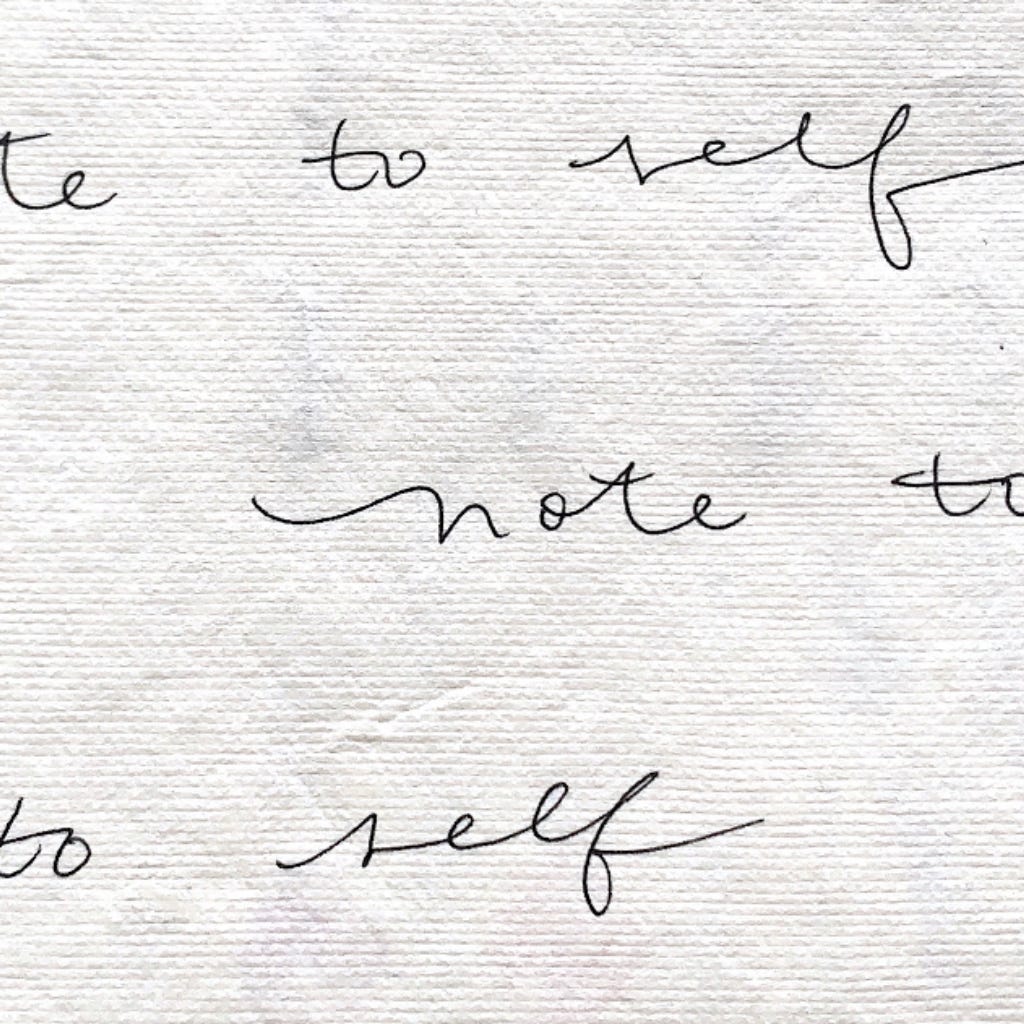 te to self
note to
to self